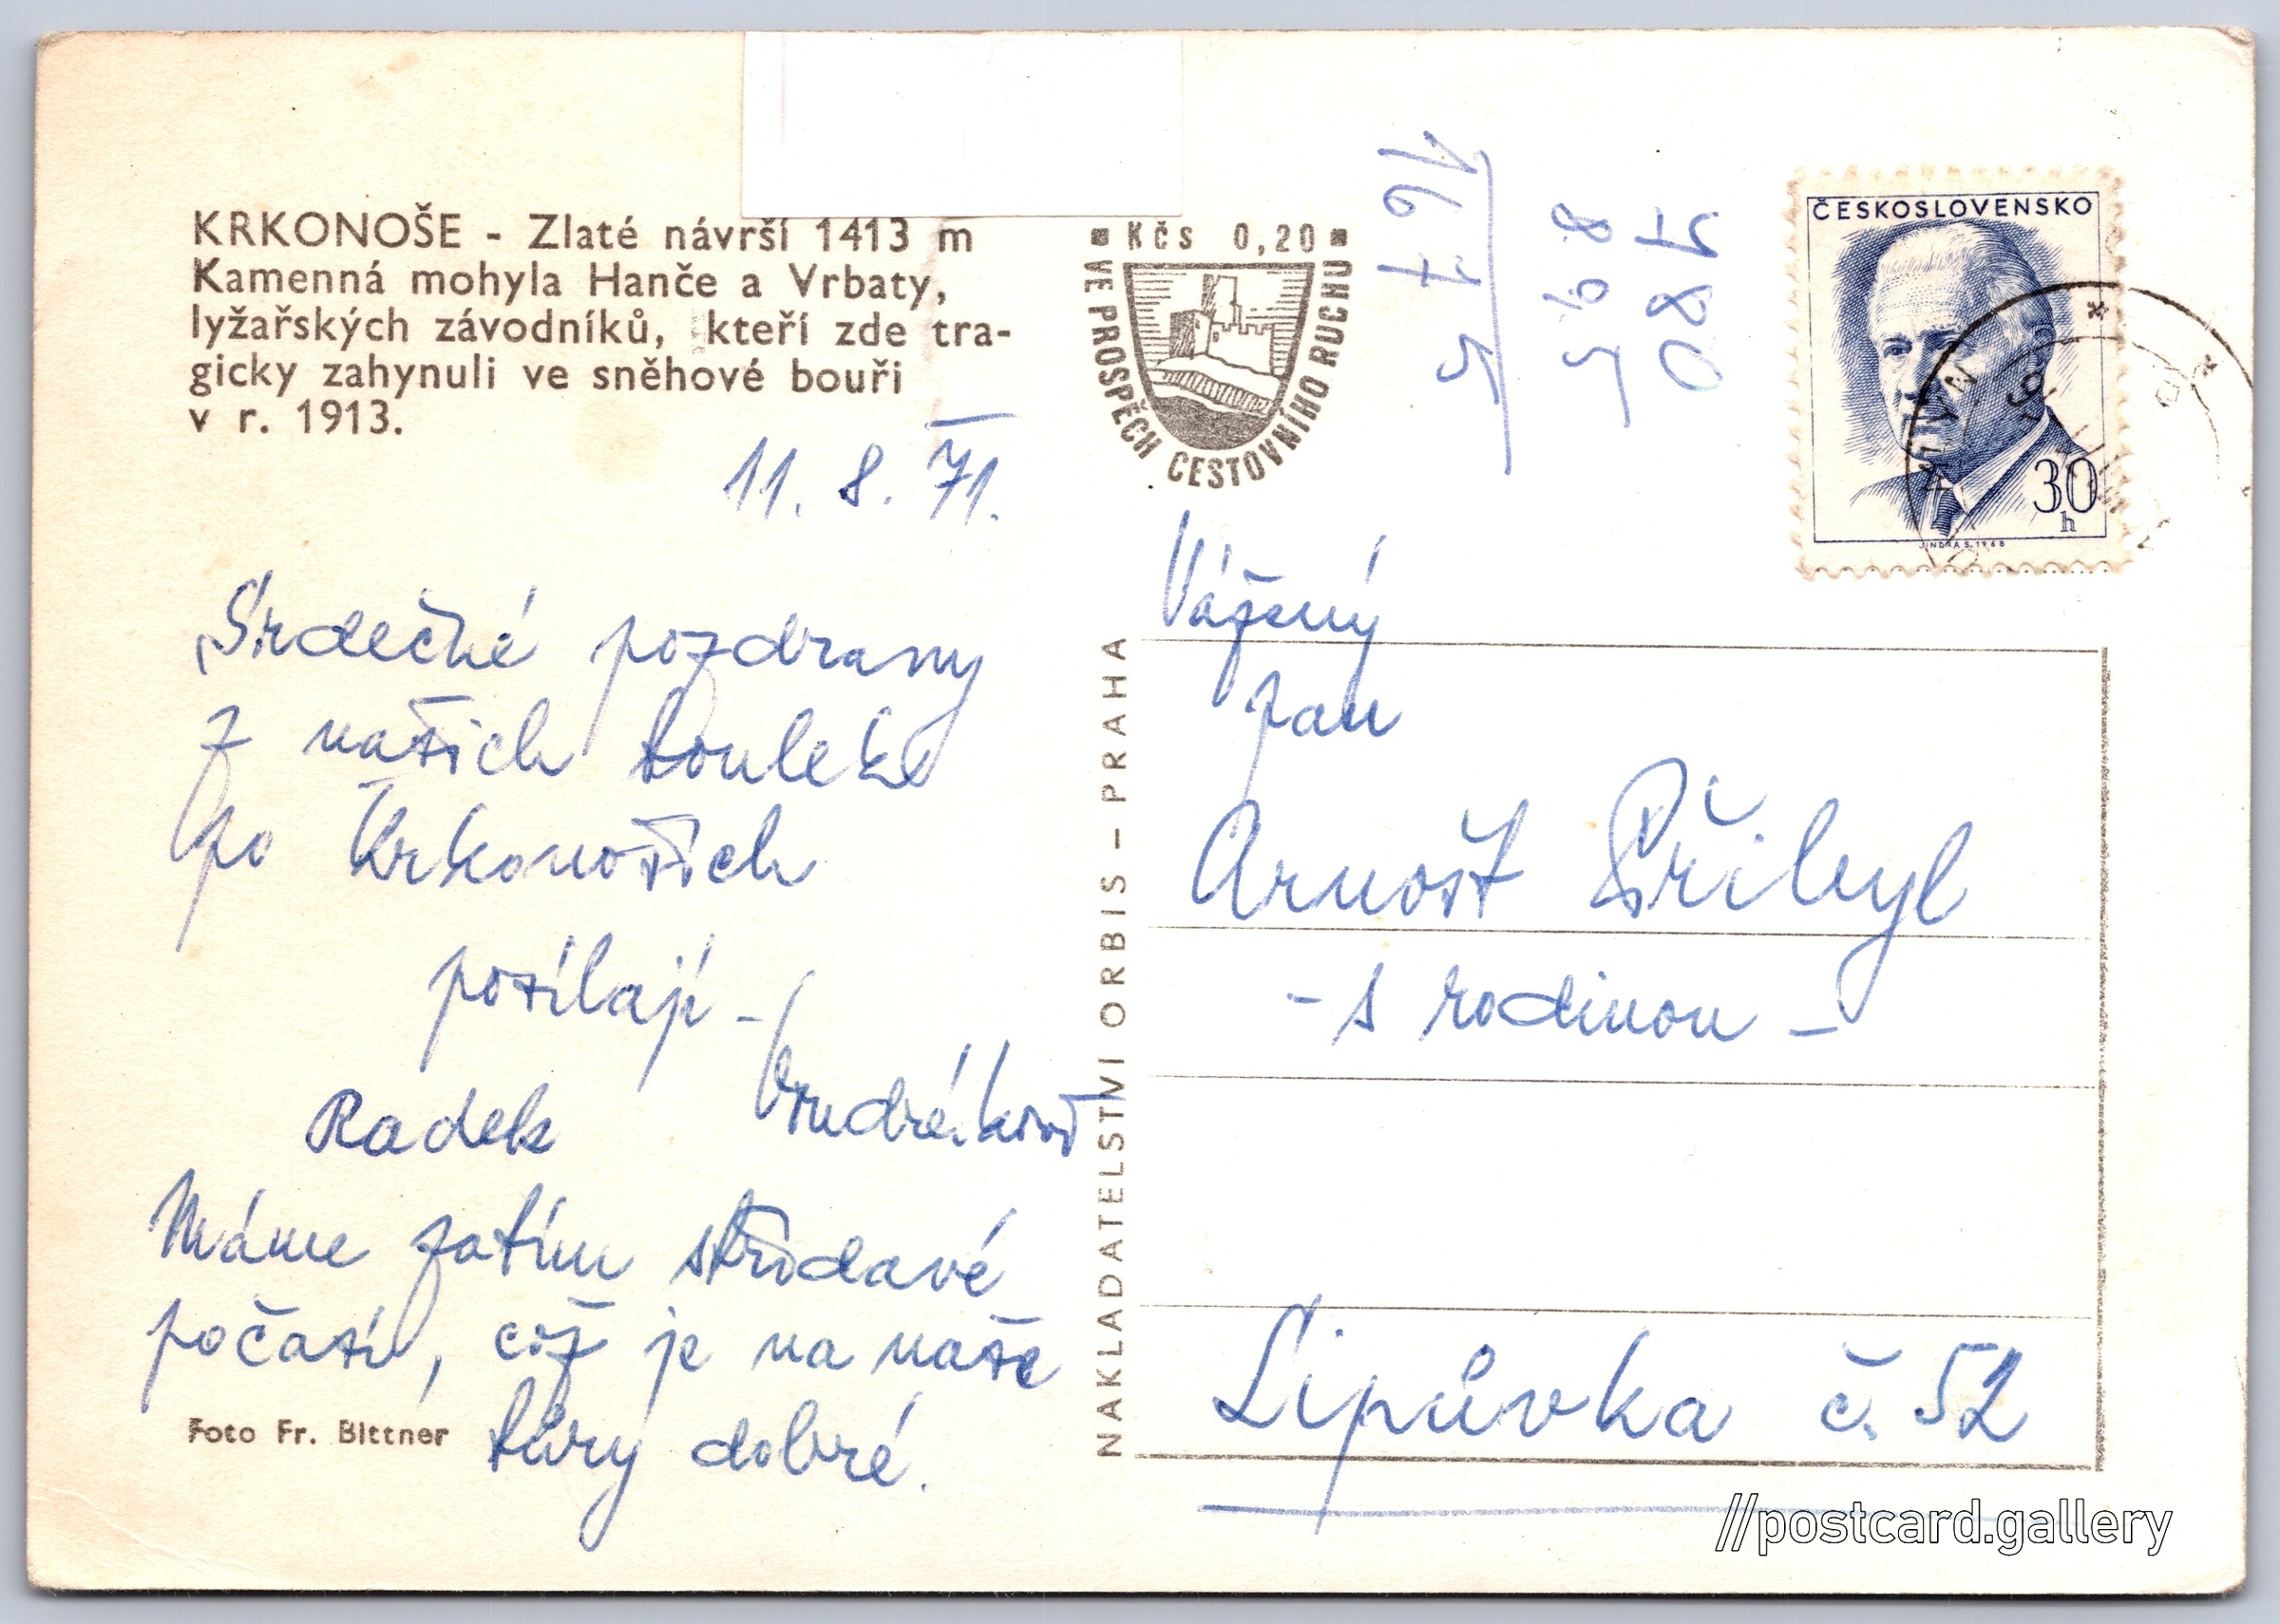 KRKONOŠE - Zlaté návrší 1413 m
Kamenná mohyla Hanče a Vrbaty,
lyžařských závodníků, kteří zde tra-
gicky zahynuli ve sněhové bouři
v r. 1913.
11. 8. 71.
Srdečné pozdravy
z našich toulek
po Krkonoších
posílají -
Radek
Máme zatím střídavé
počasí, což je na naše
túry dobré.
Foto Fr. Bittner
Kčs 0,20
VE PROSPĚCH CESTOVNÍHO RUCHU
NAKLADATELSTVÍ ORBIS – PRAHA
1675
ČESKOSLOVENSKO
30 h
JINDRA S. 1968
Vážený
pan
Arnošt Přibyl
- s rodinou -
Lipůvka č. 52
//postcard.gallery